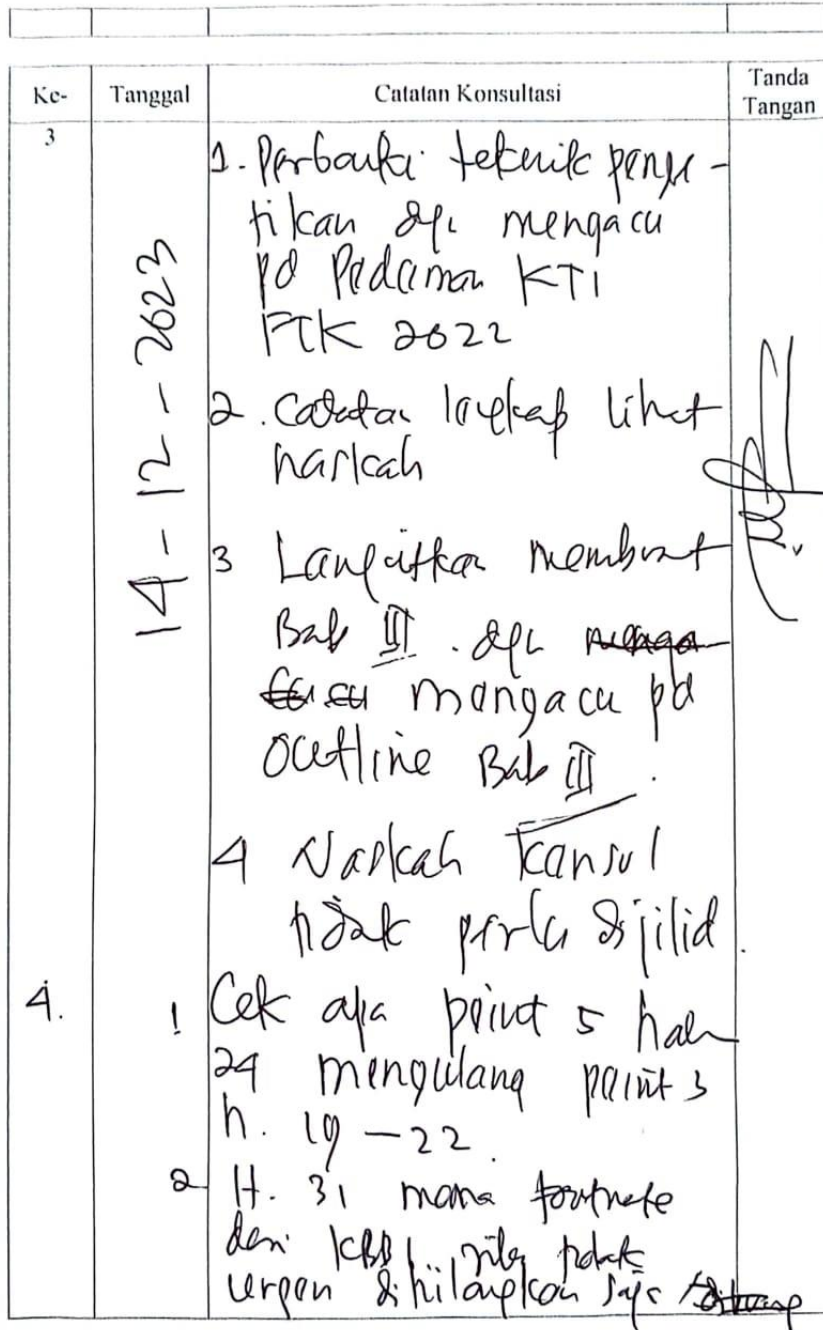 Ke- Tanggal Catatan Konsultasi Tanda Tangan
3
14-12-2023
1. Perbaiki teknik penge-
tikan dgn mengacu
pd Pedoman KTI
FTK 2022
2. Catatan lengkap lihat
naskah
3 Lanjutkan membuat
Bab III . dgn
mengacu pd
outline Bab III .
4 Naskah konsul
tidak perlu dijilid .
4.
1 Cek apa point 5 hal
24 mengulang point 3
h. 19-22 .
2 H. 31 mana footnote
dari KBBI tidak
urgen dihilangkan saja